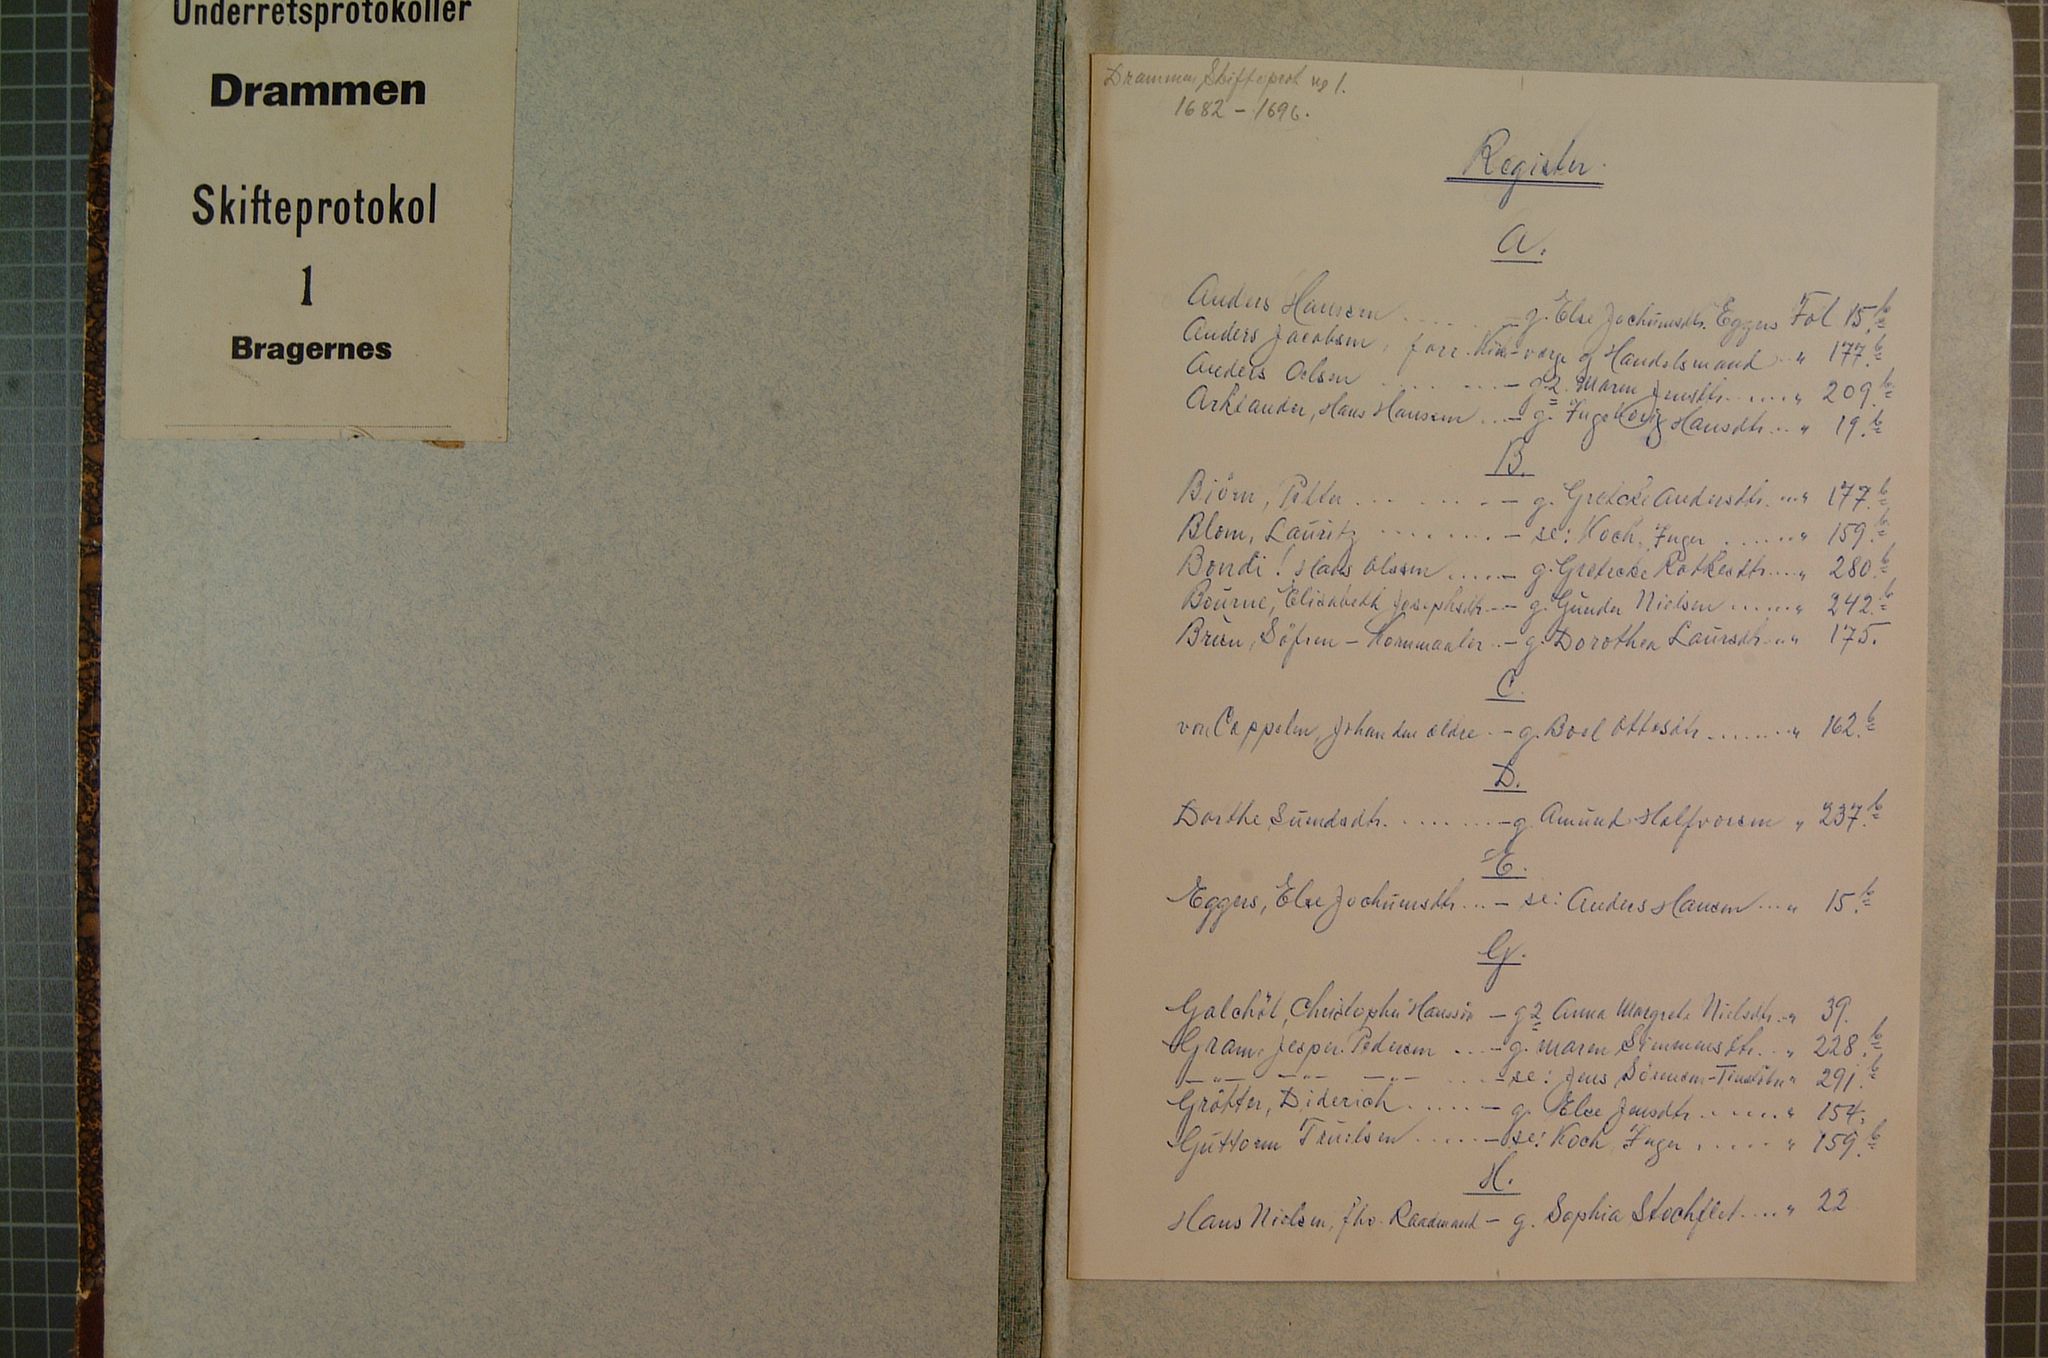 Underretsprotokoller
Drammen
Skifteprotokol
1
Bragernes
Drammen Skifteprot no 1.
1682 - 1696.
Register.
A.
Anders Hansen ..... - g. Else Jochumsdtr. Eggers Fol 15.b
Anders Jacobsen, forr. Kirkeverge og Handelsmand „ 177.b
Anders Oelsen ....... - g. 2. Maren Jensdtr. ..... „ 209.b
Arktander, Hans Hansen ... - g. Ingeborg Hansdtr... „ 19.b
B.
Biörn, Petter ....... - g. Gretche Andersdtr. ... „ 177.b
Blom, Lauritz ........ - se: Koch, Inger ...... „ 159.b
Bondi! Hans Olssen ..... - g. Gretche Rotkesdtr.... „ 280.b
Bourne, Elisabeth Josephsdtr. - - g. Gunder Nielsen ...... „ 242.b
Brun, Söfren - Kornmaaler .. - g. Dorothea Laursdtr... „ 175.
C.
von Cappelen, Johan den ældre .. - g. Boel Ottesdtr. ....... „ 162.b
D.
Dorthe Sumdsdtr. ....... - g. Amund Halfvorsen „ 237.b
E.
Eggers, Else Jochumsdtr. ... - se: Anders Hansen ... „ 15.b
G.
Galchöt, Christopher Hanssön - g 2 Anna Margrete Nielsdtr. .. „ 39.
Gram, Jesper Pedersen ... - g. Maren Simmensdtr. .. „ 228.b
- „ - - „ - - „ - ... - se: Jens Sörensen - „ 291.b
Grötter, Diderich ..... - g. Else Jensdtr. ...... „ 154.
Guttorm Truelsen ..... - se: Koch, Inger ..... „ 159.b
H.
Hans Nielsen, fhv. Raadmand - g. Sophia Stochflet .... „ 22